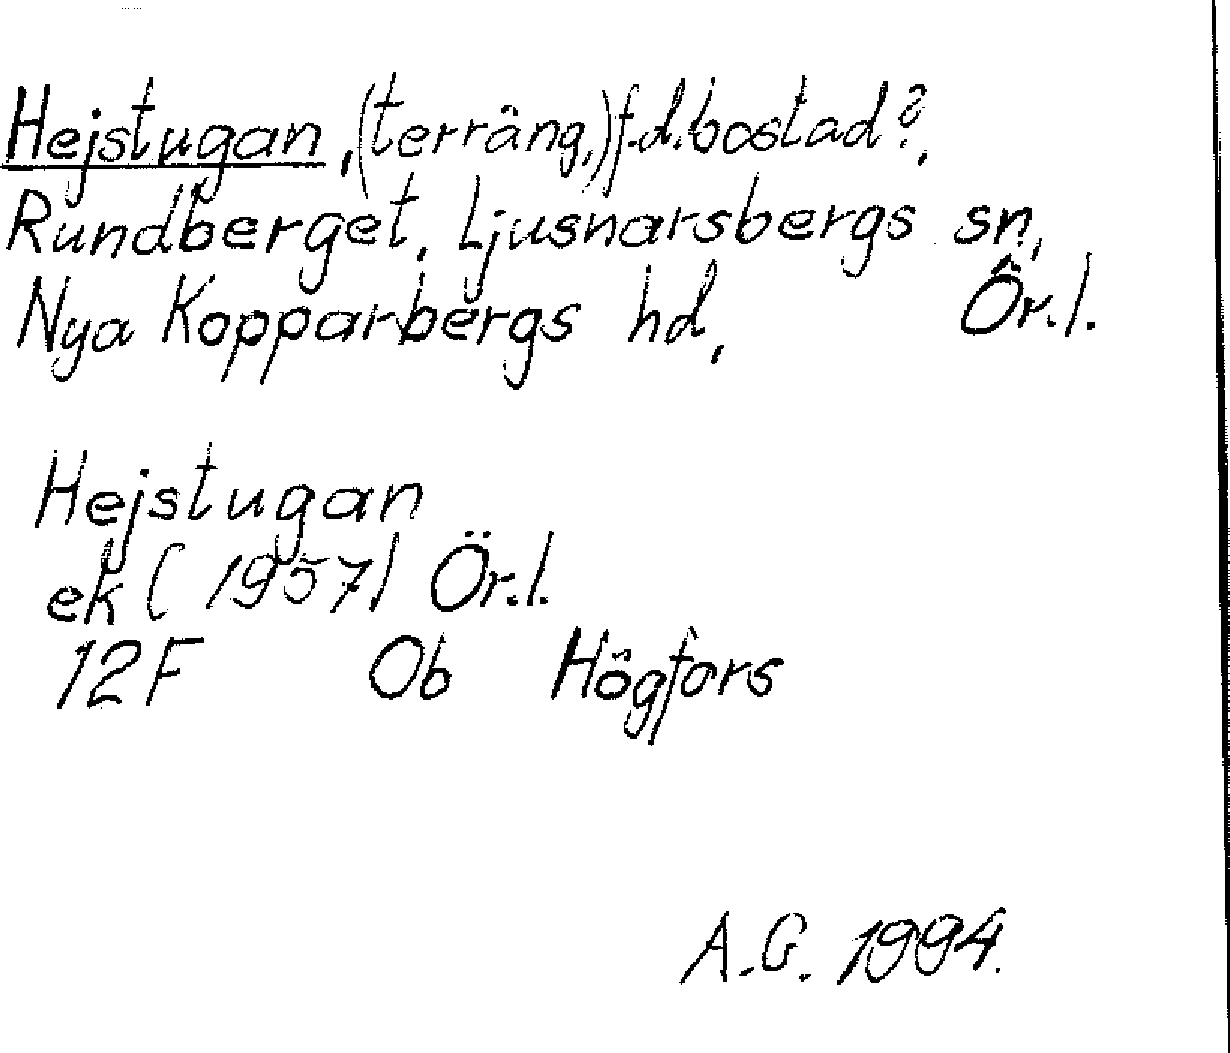 Hejstugan, (terräng,) f.d. bostad?,
Rundberget, Ljusnarsbergs sn,
Nya Kopparbergs hd, Ör.l.
Hejstugan
ek (1957) Ör.l.
12F 0b Högfors
A.G. 1994.